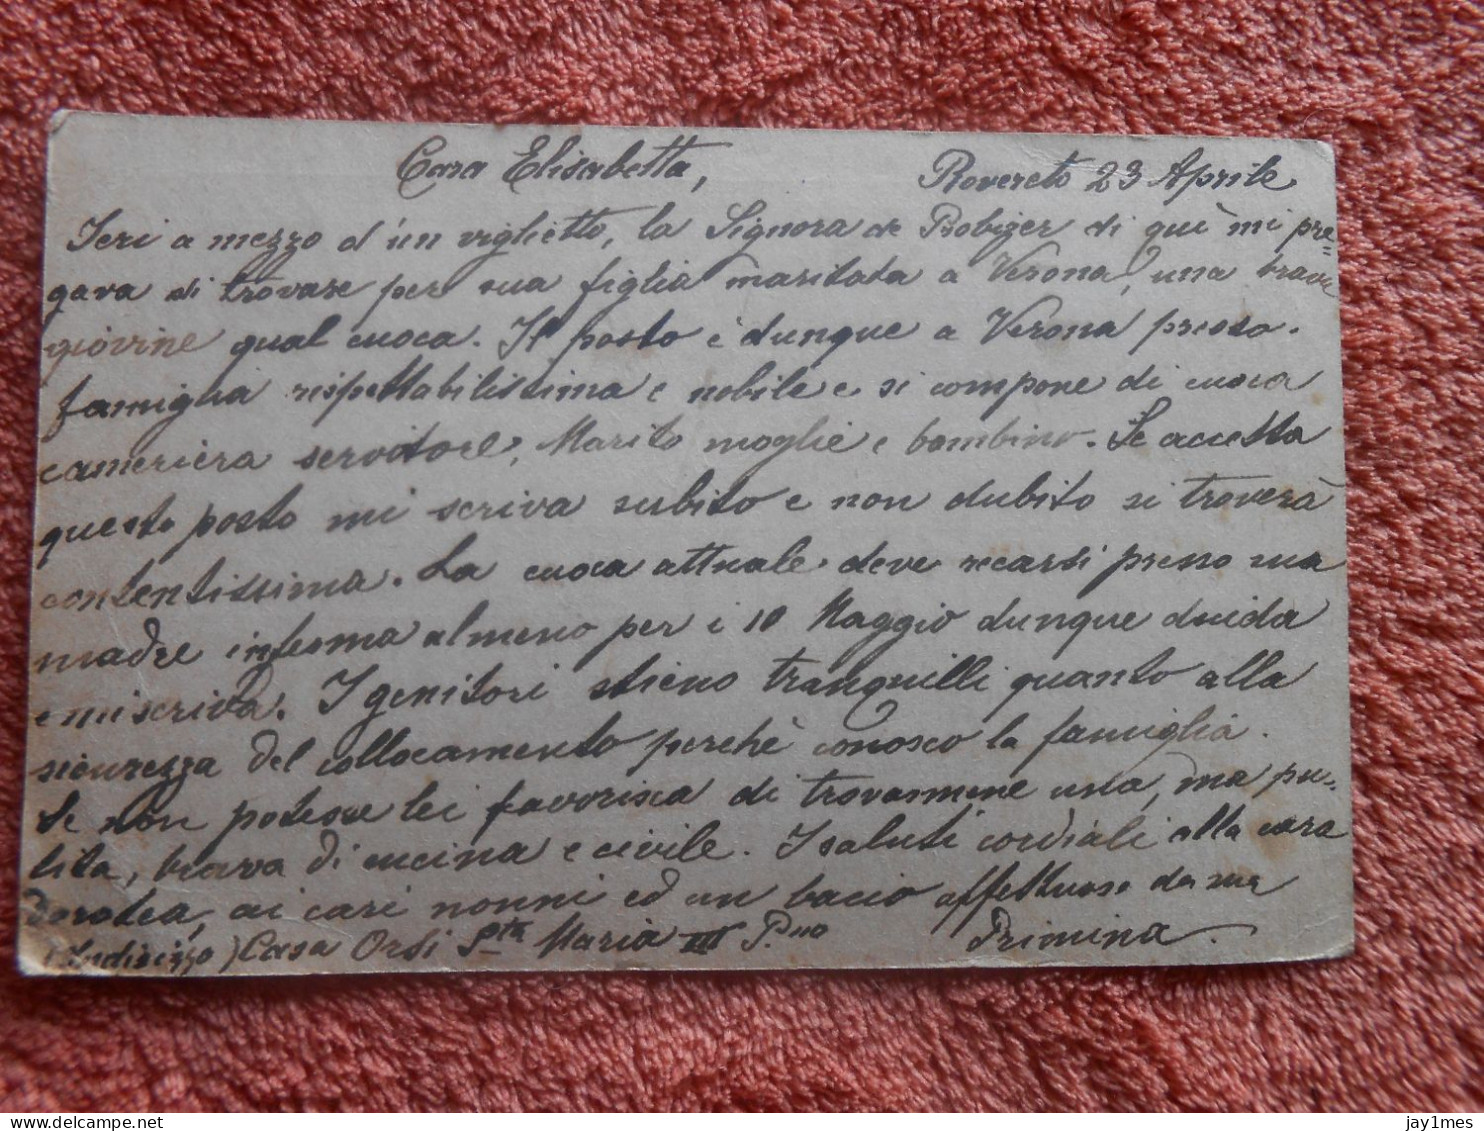 Cara Elisabetta,
Rovereto 23 Aprile
Ieri a mezzo d'un viglietto, la Signora de Probizer di qui mi pre=
gava di trovare per sua figlia maritata a Verona, una brava
giovine qual cuoca. Il posto è dunque a Verona presso
famiglia rispettabilissima e nobile e si compone di cuoca
cameriera servitore, Marito moglie e bambino. Se accetta
questo posto mi scriva subito e non dubito si troverà
contentissima. La cuoca attuale deve recarsi presso sua
madre inferma almeno per i 10 Maggio dunque decida
e mi scriva. I genitori stieno tranquilli quanto alla
sicurezza del collocamento perchè conosco la famiglia.
Se non potesse lei favorisca di trovarmene una, ma pu=
lita, brava di cucina e civile. I saluti cordiali alla cara
Dorotea, ai cari nonni ed un bacio affettuoso da sua
(Indirizzo) Casa Orsi Sta Maria III P.no Primina.
delcampe.net
jay1mes